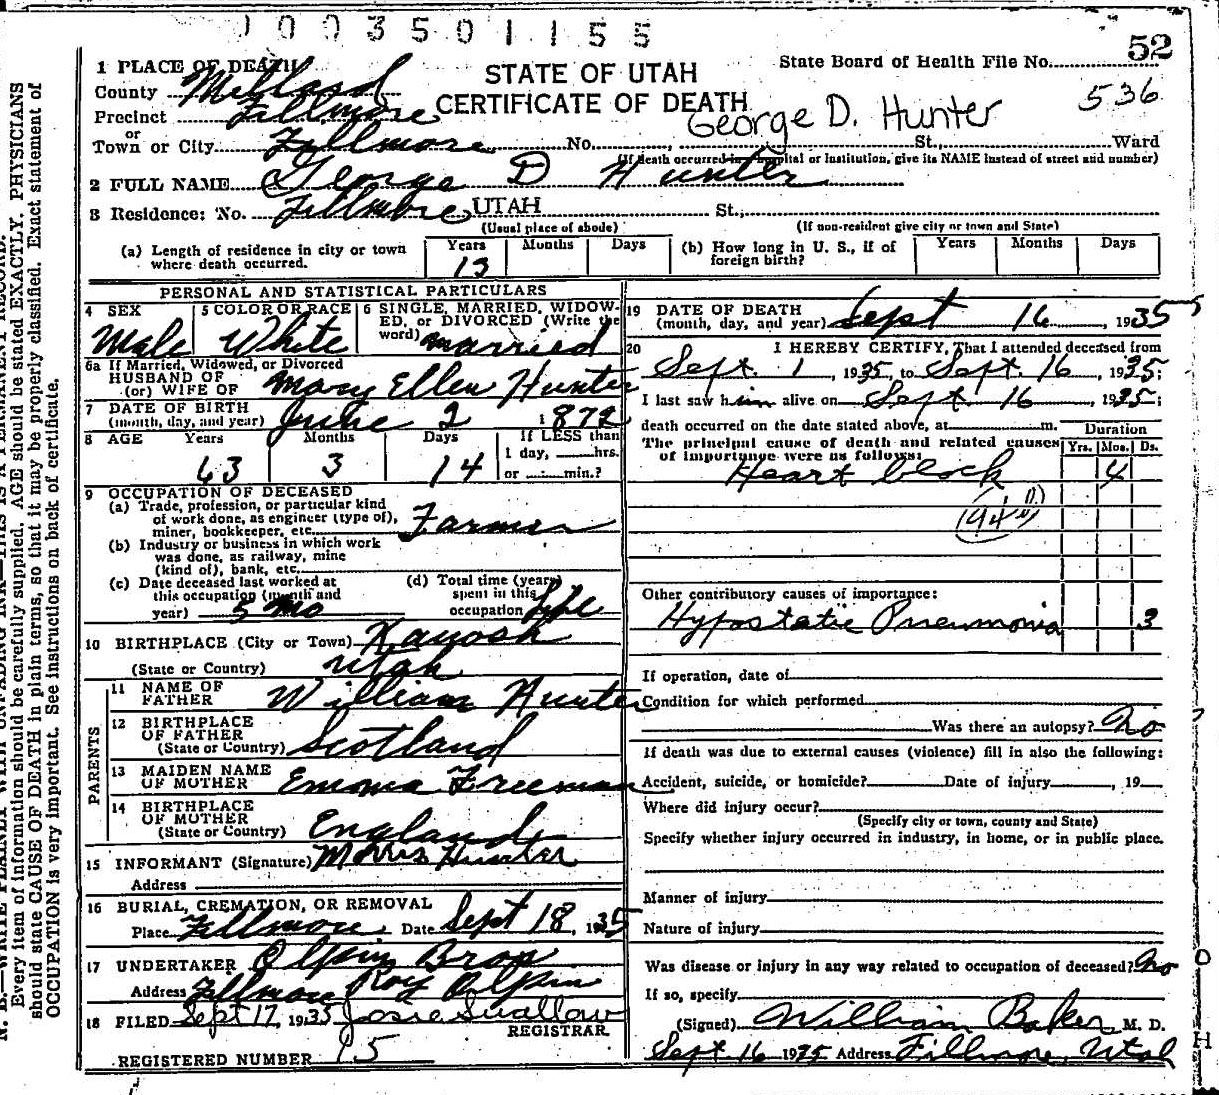 1003501155
52
1 PLACE OF DEATH
STATE OF UTAH
State Board of Health File No.
County Millard
CERTIFICATE OF DEATH
536
Precinct Fillmore
George D. Hunter
or
Town or City Fillmore No. , St., Ward
(If death occurred in a hospital or institution, give its NAME instead of street and number)
2 FULL NAME George D Hunter
3 Residence: No. Fillmore UTAH St.,
(Usual place of abode) (If non-resident give city or town and State)
(a) Length of residence in city or town where death occurred. Years 13 Months Days
(b) How long in U. S., if of foreign birth? Years Months Days
PERSONAL AND STATISTICAL PARTICULARS
4 SEX Male
5 COLOR OR RACE White
6 SINGLE, MARRIED, WIDOWED, or DIVORCED (Write the word) Married
6a If Married, Widowed, or Divorced
HUSBAND OF
(or) WIFE OF Mary Ellen Hunter
7 DATE OF BIRTH
(month, day, and year) June 2 1872
8 AGE Years Months Days If LESS than
63 3 14 1 day, hrs.
or min.?
9 OCCUPATION OF DECEASED
(a) Trade, profession, or particular kind
of work done, as engineer (type of),
miner, bookkeeper, etc. Farmer
(b) Industry or business in which work
was done, as railway, mine
(kind of), bank, etc.
(c) Date deceased last worked at
this occupation (month and
year) 5 Mo
(d) Total time (years)
spent in this
occupation Life
10 BIRTHPLACE (City or Town) Kanosh
(State or Country) Utah
PARENTS
11 NAME OF
FATHER William Hunter
12 BIRTHPLACE
OF FATHER
(State or Country) Scotland
13 MAIDEN NAME
OF MOTHER Emma Freeman
14 BIRTHPLACE
OF MOTHER
(State or Country) England
15 INFORMANT (Signature) Morris Hunter
Address
16 BURIAL, CREMATION, OR REMOVAL
Place Fillmore Date Sept 18, 1935
17 UNDERTAKER Olpin Bros
Address Fillmore Roy Olpin
18 FILED Sept 17, 1935 Josie Swallow
REGISTRAR
REGISTERED NUMBER 15
19 DATE OF DEATH
(month, day, and year) Sept 16, 1935
20 I HEREBY CERTIFY, That I attended deceased from
Sept. 1, 1935, to Sept. 16, 1935;
I last saw him alive on Sept. 16, 1935;
death occurred on the date stated above, at m.
Duration
The principal cause of death and related causes
of importance were as follows:
Yrs. Mos. Ds.
Heart block 4
Other contributory causes of importance:
Hypostatic Pneumonia 3
If operation, date of
Condition for which performed
Was there an autopsy? No
If death was due to external causes (violence) fill in also the following:
Accident, suicide, or homicide? Date of injury , 19
Where did injury occur?
(Specify city or town, county and State)
Specify whether injury occurred in industry, in home, or in public place.
Manner of injury
Nature of injury
Was disease or injury in any way related to occupation of deceased? No
If so, specify
(Signed) William Baker M. D.
Sept. 16 1935 Address Fillmore, Utah
Every item of information should be carefully supplied. AGE should be stated EXACTLY. PHYSICIANS
should state CAUSE OF DEATH in plain terms, so that it may be properly classified. Exact statement of
OCCUPATION is very important. See instructions on back of certificate.